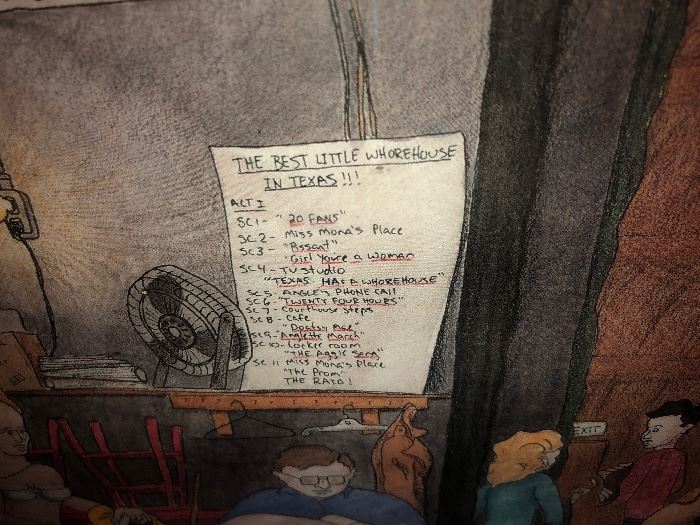 THE BEST LITTLE WHOREHOUSE
IN TEXAS!!!
ACT I
SC 1 - "20 FANS"
SC. 2 - Miss Mona's Place
SC 3 - "Pissant"
"Girl You're a Woman
SC 4 - TV STUDIO
"TEXAS HAS A WHOREHOUSE"
SC 5 - ANGEL'S PHONE CALL
SC 6 - "TWENTY FOUR HOURS"
SC 7 - Courthouse Steps
SC 8 - Cafe
"Doatsy Mae"
SC 9 - "Anglette March"
SC 10 - Locker room
"THE Aggie Song"
SC 11 Miss Mona's Place
"The Prom"
THE RAID!
EXIT